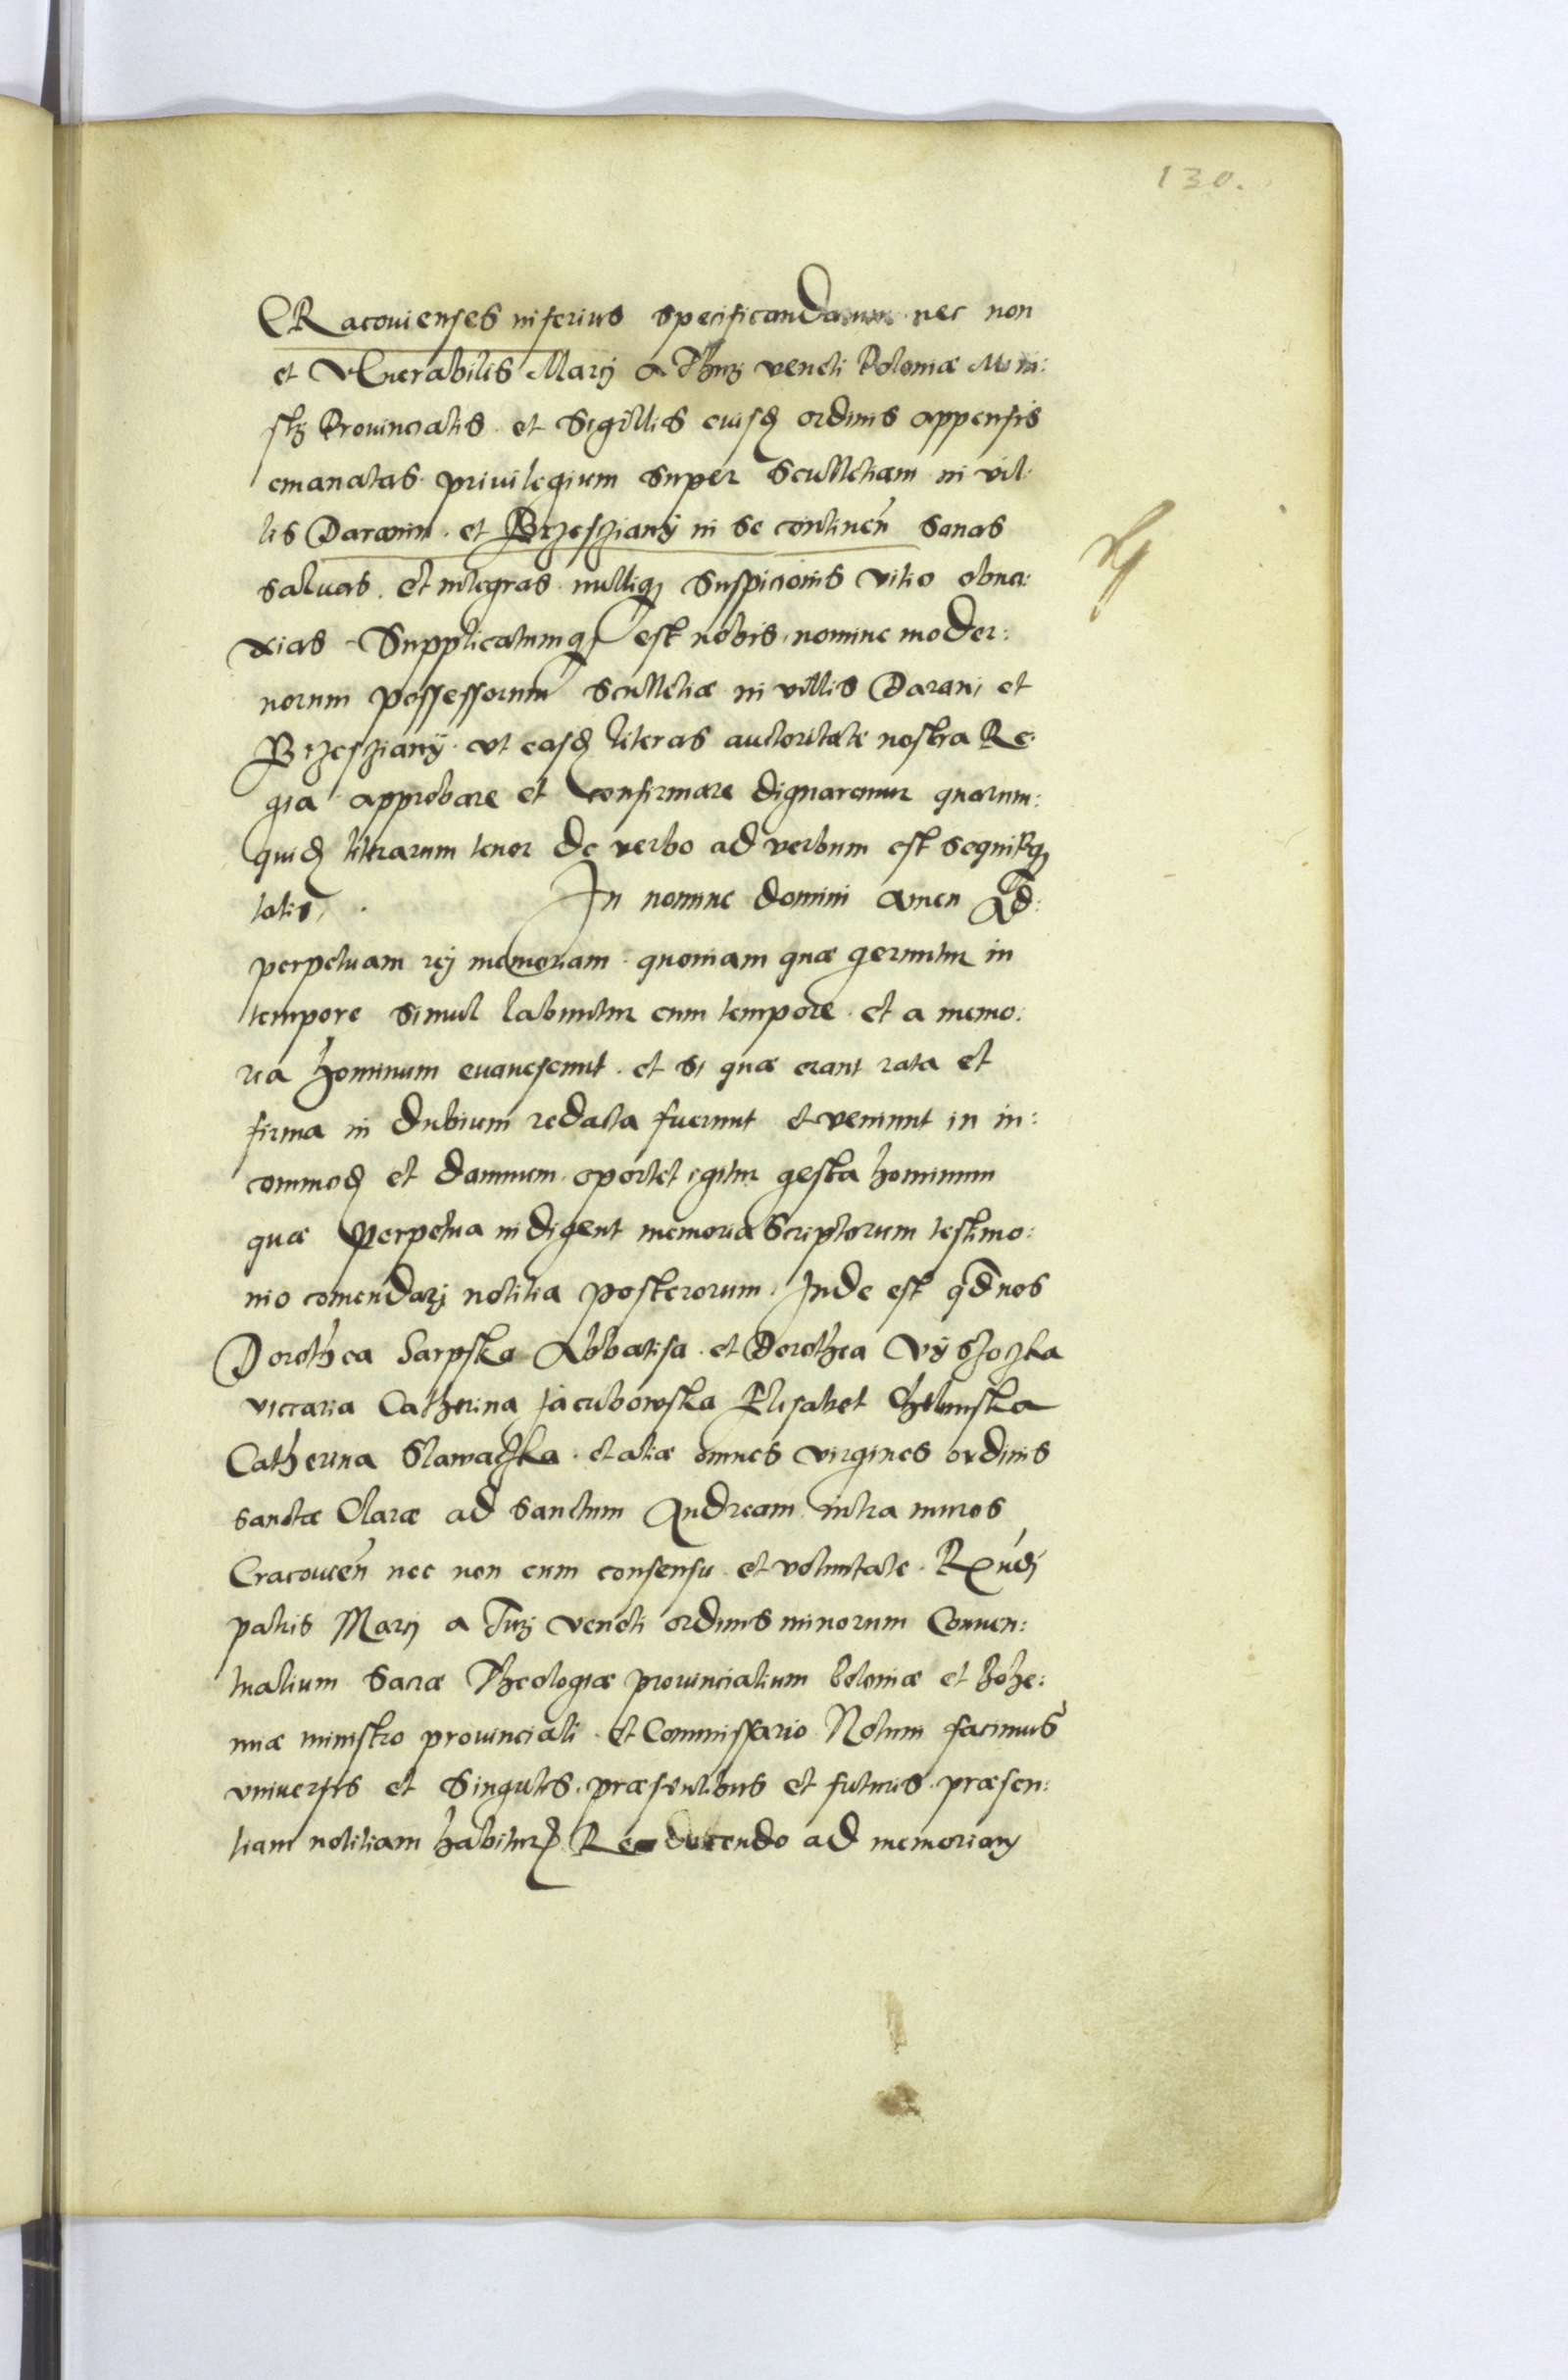 130.
CRacouienses inferius specificandarum nec non
et Venerabilis Marcj a Thurj veneti Poloniæ Mini:
strj Prouincialis et Sigillis eiusdq ordinis appensis
emanatas priuilegium super Scultetiam in vil:
lis Daramin et Brzesczianÿ in se continen̄ Sanas
saluas et integras nulliq3 Suspicionis vitio obno:
xias Supplicatumq3 est nobis nomine moder:
norum possessorum Scultetiæ in villis Darani et
Brzesczianÿ vt easdq literas auctoritate nostra Re:
gia approbare et confirmare dignaremur quarum:
quidq literarum tenor de verbo ad verbum est sequiturq3
talis. In nomine domini amen Ad:
perpetuam rej memoriam quoniam quæ geruntur in
tempore simul labuntur cum tempore et a memo:
ria hominum euanescunt et si quæ erant rata et
firma in dubium redacta fuerunt et veniunt in in:
commodq et damnum oportet igitur gesta hominum
quæ perpetua indigent memoria Scriptorum testimo:
nio comendarj notitia posterorum Inde est qd nos
Dorothea Sarpska Abbatisa et Dorothea Vÿszoczka
viccaria Catherina Jacubowska Elisabet Chelmska
Catherina Slawaczka et aliæ omnes virgines ordinis
sanctæ Claræ ad Sanctum Andream intra muros
Cracouien̄ nec non cum consensu et voluntate Rxndj
patris Marcj a Turj veneti ordinis minorum Conuen:
tualium Sacræ Theologiæ prouincialium boloniæ et bohe:
miæ ministro prouinciali et Commissario Notum facimus
vniuersis et Singulis præsentibus et futuris præsen:
tiam notitiam habitur Reducendo ad memoriam